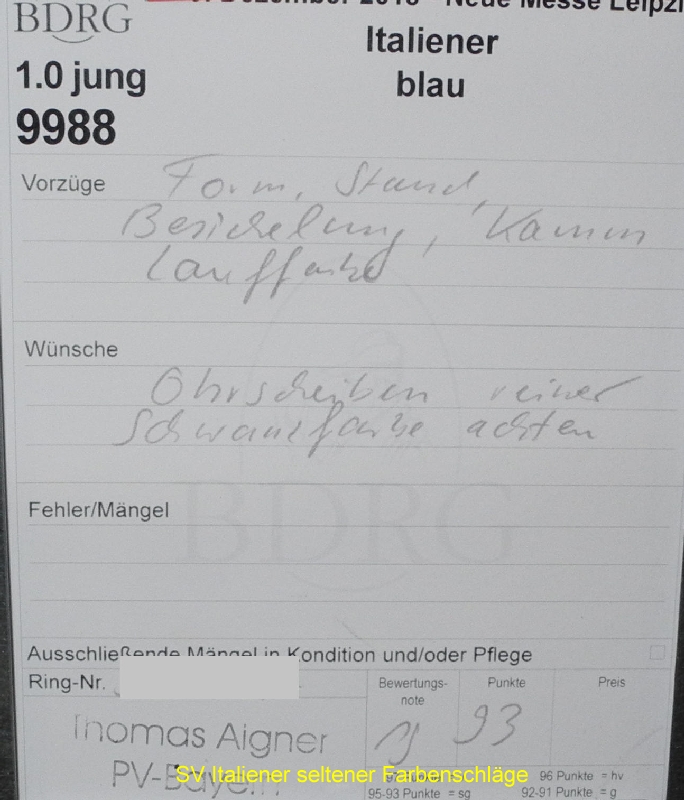 BDRG
Neue Messe Leipzi
Italiener
1.0 jung
blau
9988
Vorzüge Form, Stand,
Besichelung, Kamm
Lauffarbe
Wünsche
Ohrscheiben reiner
Schwanzfarbe achten
BDRG
Fehler/Mängel
Ausschließende Mängel in Kondition und/oder Pflege
Ring-Nr.
Bewertungs-
note
Punkte
Preis
sg 93
Thomas Aigner
PV-Bayern
SV Italiener seltener Farbenschläge
96 Punkte = hv
95-93 Punkte = sg
92-91 Punkte = g